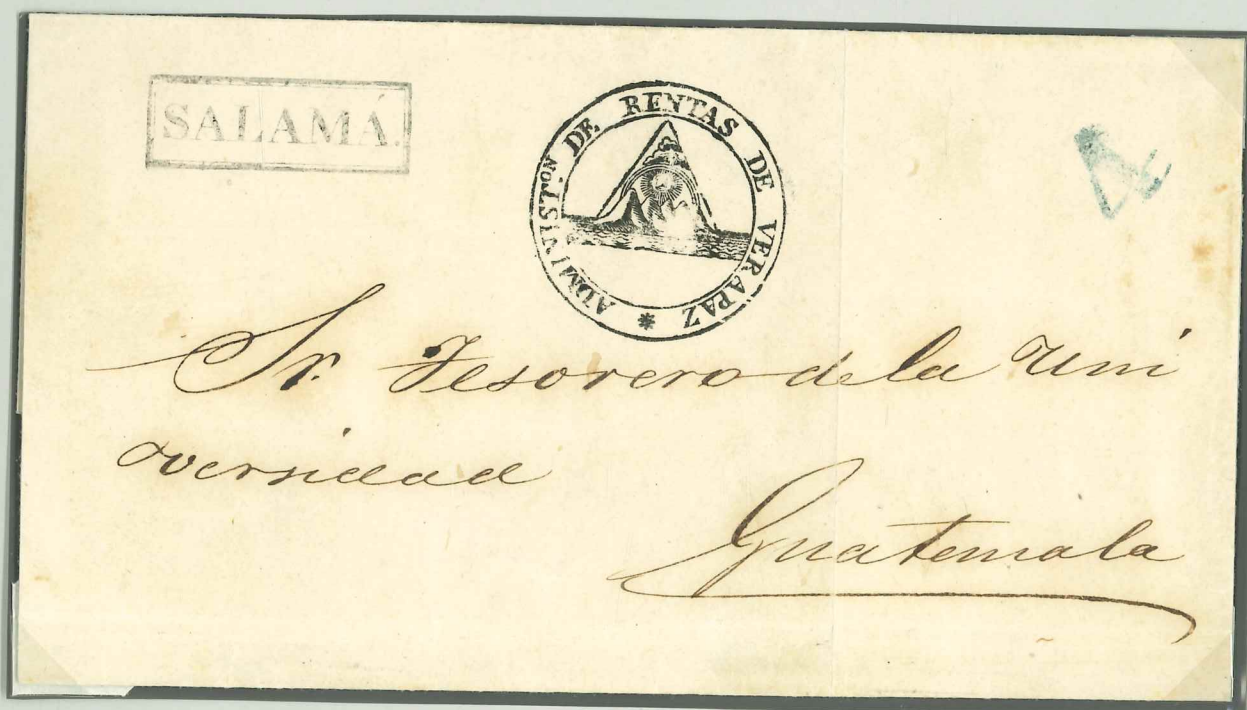 SALAMÁ.
ADMINIST.ON DE RENTAS DE VERAPAZ *
Sr. Tesorero de la Uni
versidad
Guatemala